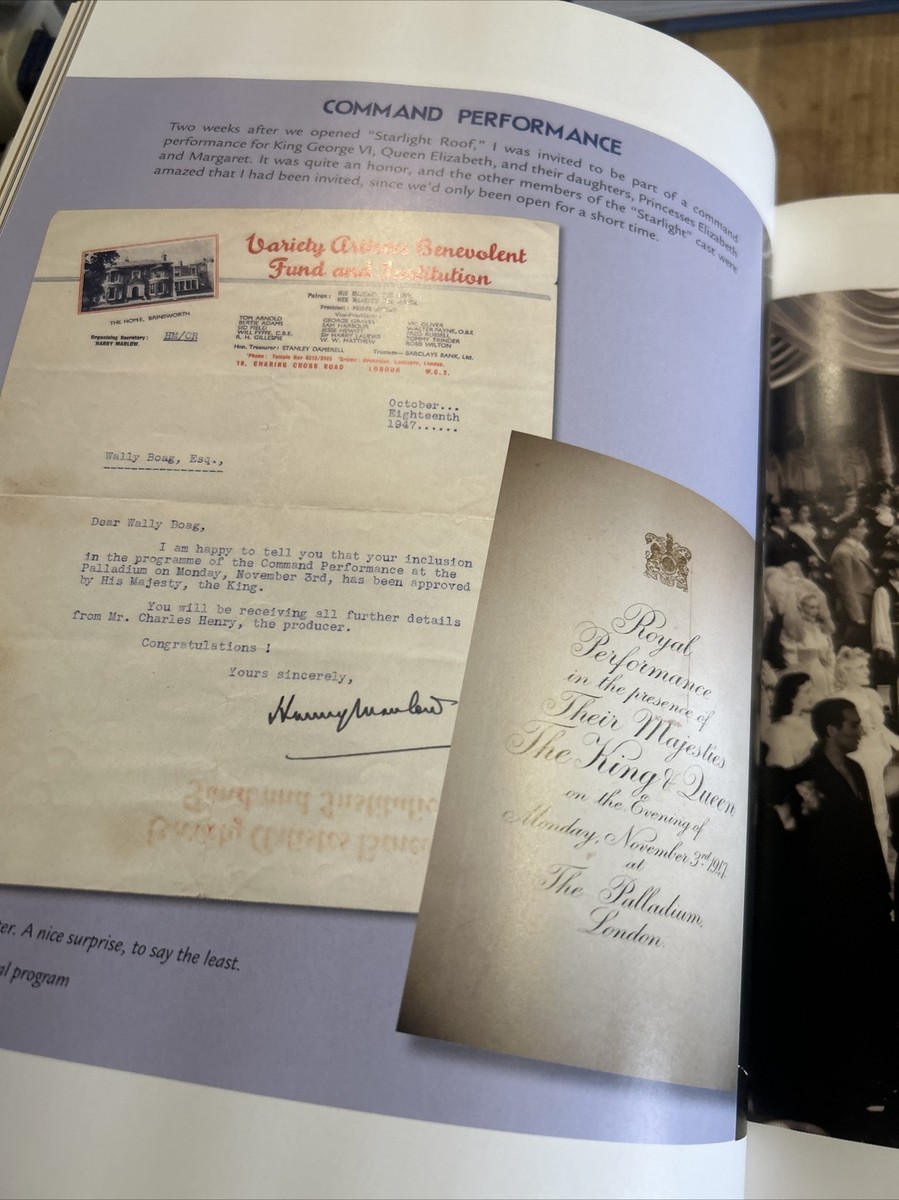 COMMAND PERFORMANCE
Two weeks after we opened "Starlight Roof," I was invited to be part of a command
performance for King George VI, Queen Elizabeth, and their daughters, Princesses Elizabeth
and Margaret. It was quite an honor, and the other members of the "Starlight" cast were
amazed that I had been invited, since we'd only been open for a short time.
Variety Artistes Benevolent
Fund and Institution
THE HOME, BRINSWORTH
Organising Secretary:
HARRY MARLOW.
HM/OR
Patron: HIS MAJESTY THE KING
HER MAJESTY
President:
Vice-Presidents:
TOM ARNOLD
BERTIE ADAMS
SID FIELD
WILL FYFFE, C.B.E.
R. H. GILLESPIE
GEORGE GRAVES
SAM HARBOUR
JESSE HEWITT
SIR HARRY LAUDER
W. W. MATTHEW
VIC OLIVER
WALTER PAYNE, O.B.E.
FRED RUSSELL
TOMMY TRINDER
ROBB WILTON
Hon. Treasurer: STANLEY DAMERELL
Trustees—BARCLAYS BANK, Ltd.
'Phone: Temple Bar London.
18, CHARING CROSS ROAD LONDON W.C.2.
October...
Eighteenth
1947......
Wally Boag, Esq.,
Dear Wally Boag,
I am happy to tell you that your inclusion
in the programme of the Command Performance at the
Palladium on Monday, November 3rd, has been approved
by His Majesty, the King.
You will be receiving all further details
from Mr. Charles Henry, the producer.
Congratulations !
Yours sincerely,
Harry Marlow
Royal
Performance
in the presence of
Their Majesties
The King & Queen
on the Evening of
Monday, November 3rd 1947.
at
The Palladium,
London.
ter. A nice surprise, to say the least.
al program